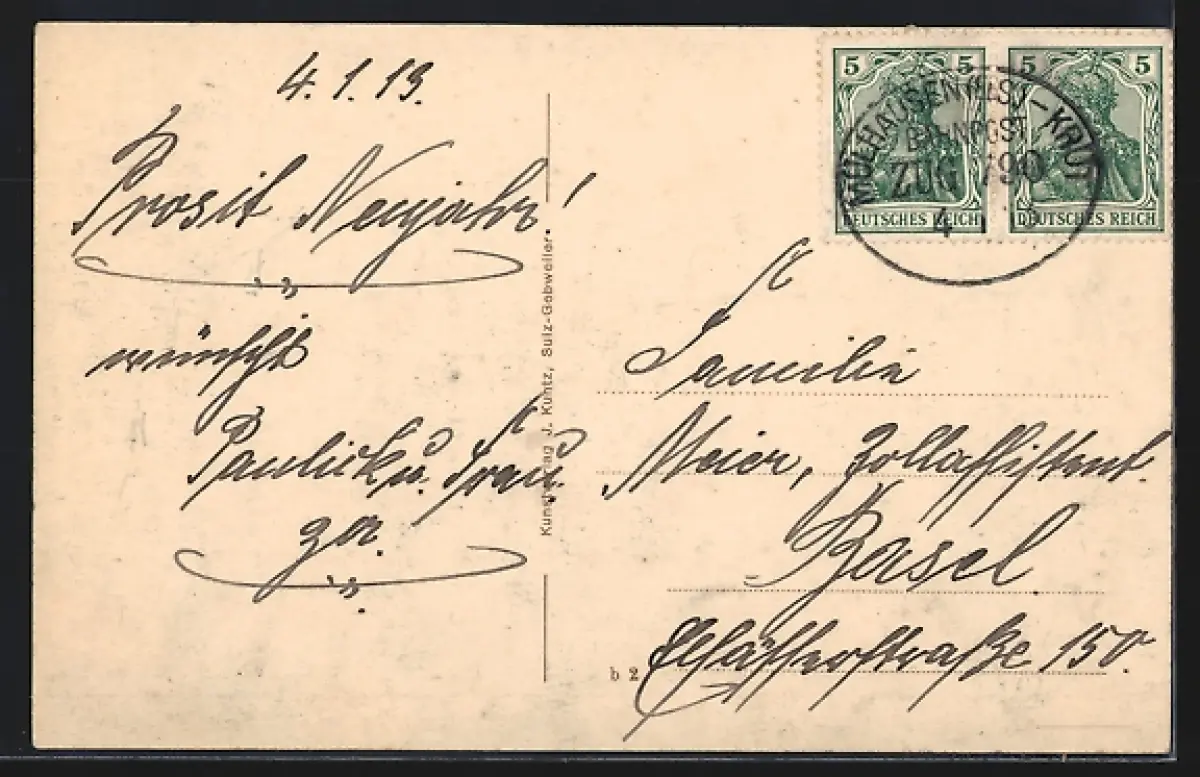 4.1.13.
Prosit Neujahr!
wünscht
Paulick u. Frau.
Kunstverlag J. Kuntz, Sulz-Gebweiler
5 5
5 5
DEUTSCHES REICH
DEUTSCHES REICH
MÜLHAUSEN (ELS) - KRÜT
BAHNPOST
ZUG 790
4 1
Familie
Meier, Zollassistent.
Basel.
Elsässerstraße 150.
b 2